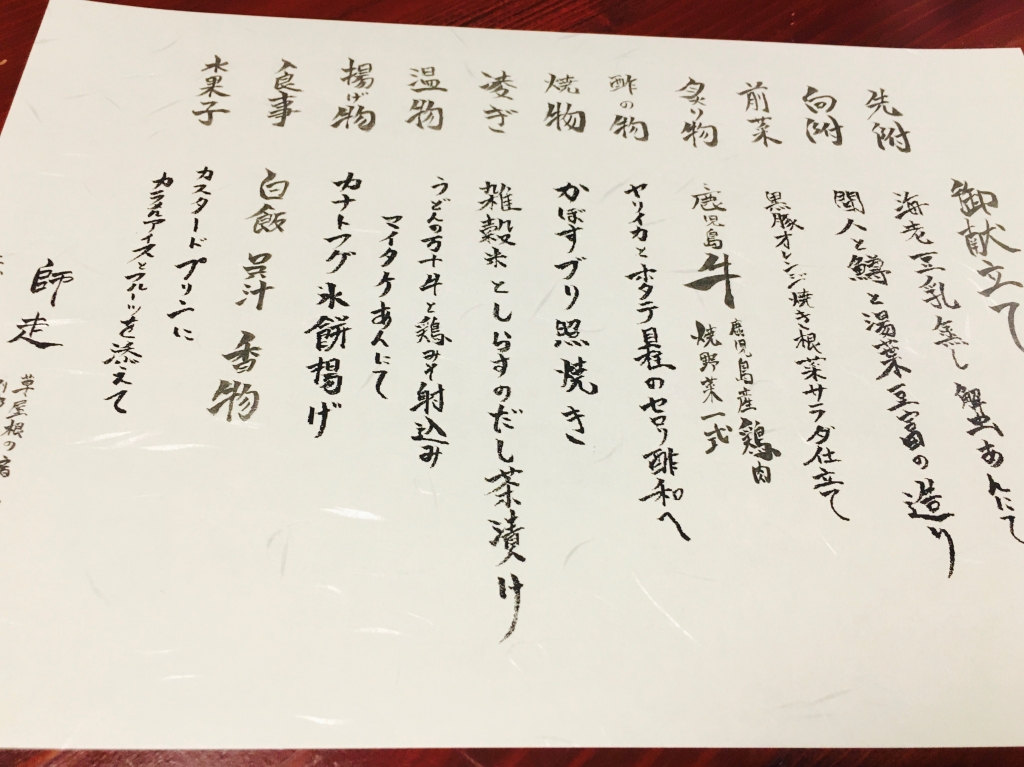 御献立て
先附 海老豆乳蒸し 蟹あんにて
向附 間人と鱒と湯葉豆富の造り
前菜 黒豚オレンジ焼き根菜サラダ仕立て
炙り物 鹿児島牛 鹿児島産鶏肉
焼野菜一式
酢の物 ヤリイカとホタテ貝柱のセロリ酢和へ
焼物 かぼすブリ照焼き
凌ぎ 雑穀米としらすのだし茶漬け
温物 うどんの万十 牛と鶏みそ射込み
マイタケあんにて
揚げ物 カナトフグ氷餅揚げ
食事 白飯 呂汁 香物
水果子 カスタードプリンに
カラメルアイスとフルーツを添えて
師走
草屋根の宿